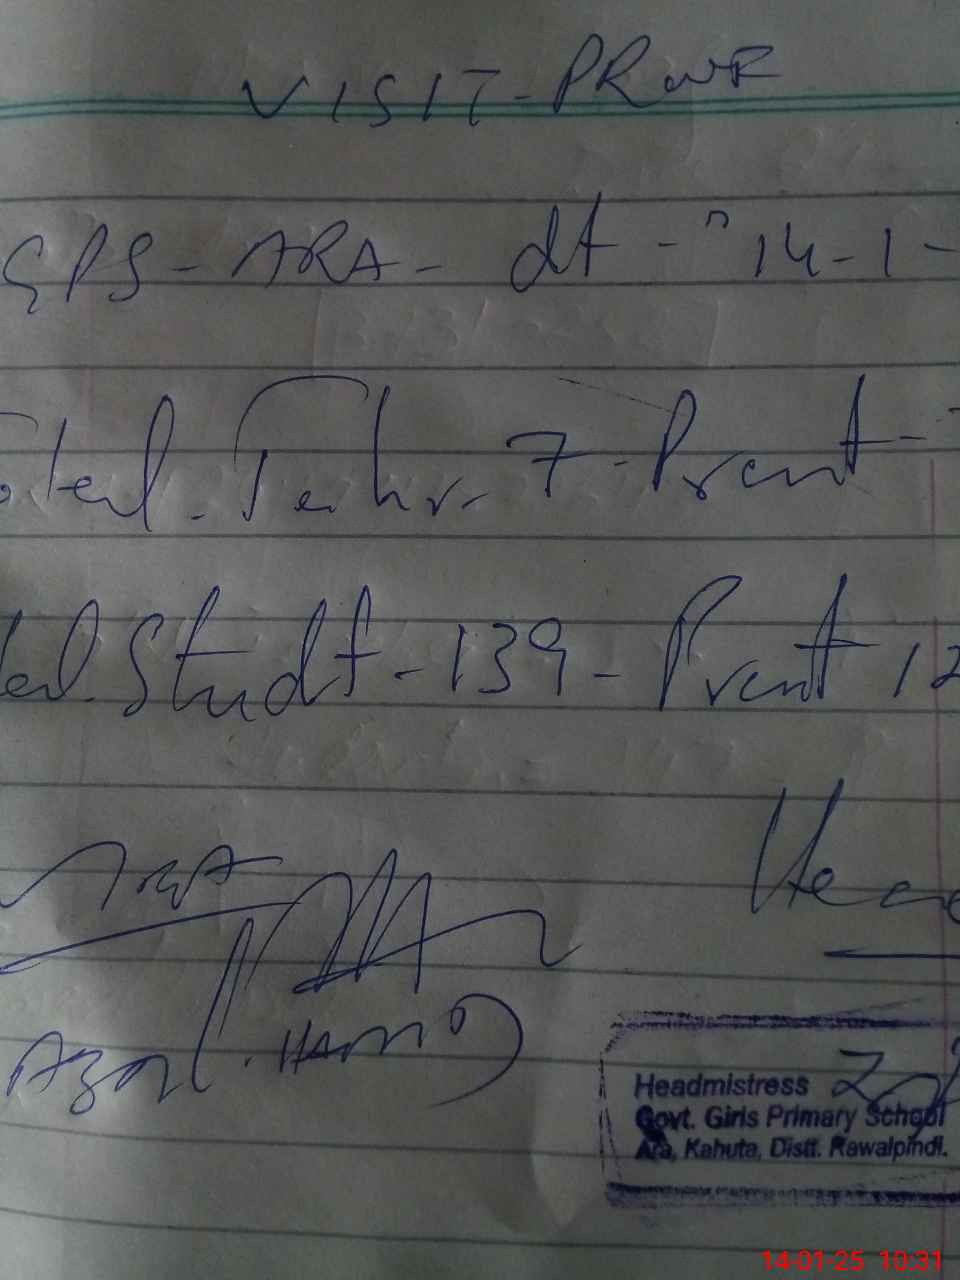 VISIT-PROOF
GPS-ARA- dt - 14-1-
Total. Teachr. 7 - Presnt -
Studt - 139 - Presnt 12
Head
Headmistress
Govt. Girls Primary School
Ara, Kahuta, Distt. Rawalpindi.
14-01-25 10:31